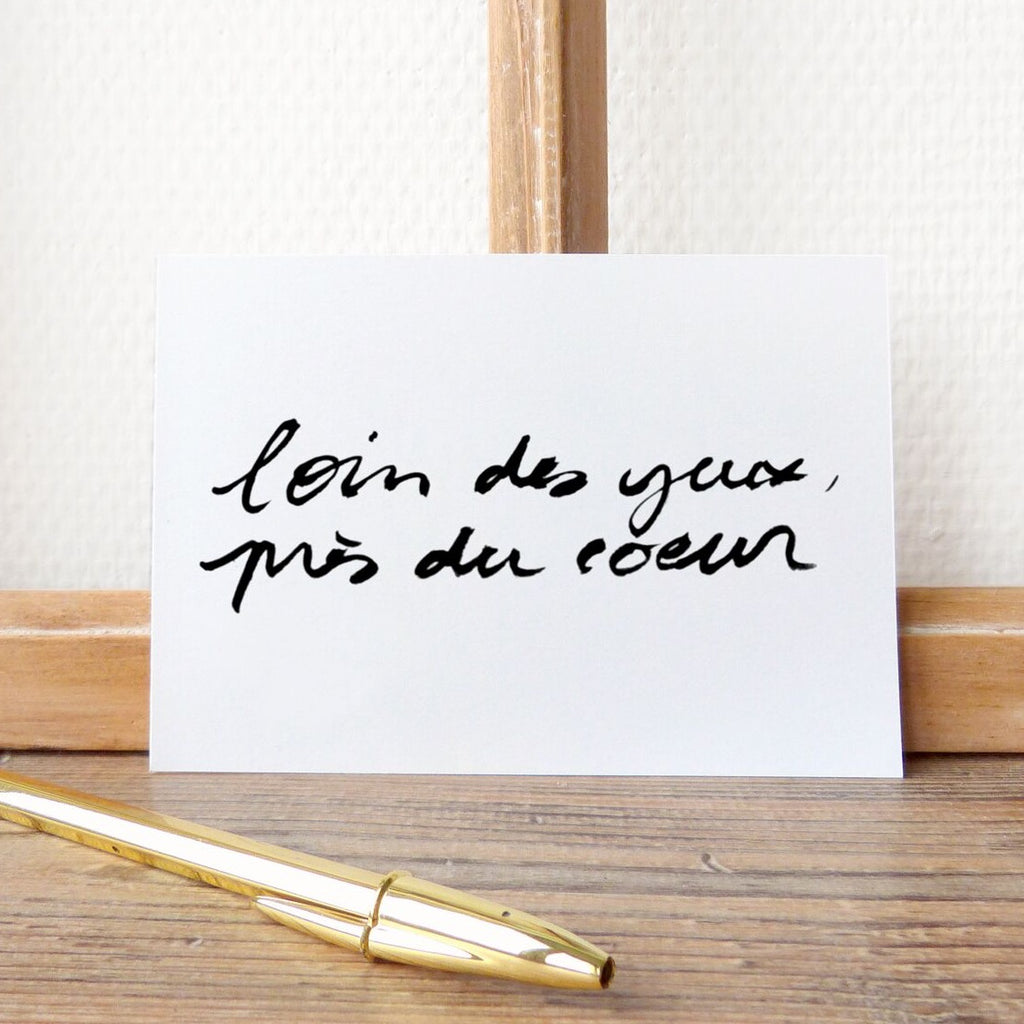 loin des yeux,
près du coeur